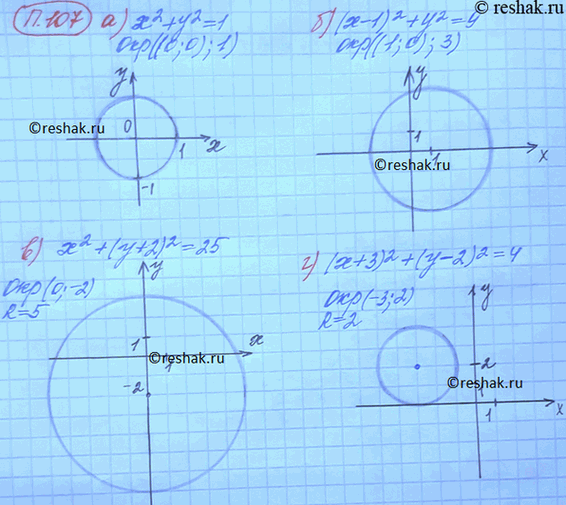 © reshak.ru
П.107 а) x²+y²=1
окр((0;0);1)
б) (x-1)²+y²=9
окр((1;0);3)
y
0
1
x
-1
©reshak.ru
y
1
1
x
©reshak.ru
в) x²+(y+2)²=25
окр(0;-2)
R=5
y
x
1
1
-2
©reshak.ru
г) (x+3)²+(y-2)²=4
окр(-3;2)
R=2
y
2
1
1
x
©reshak.ru